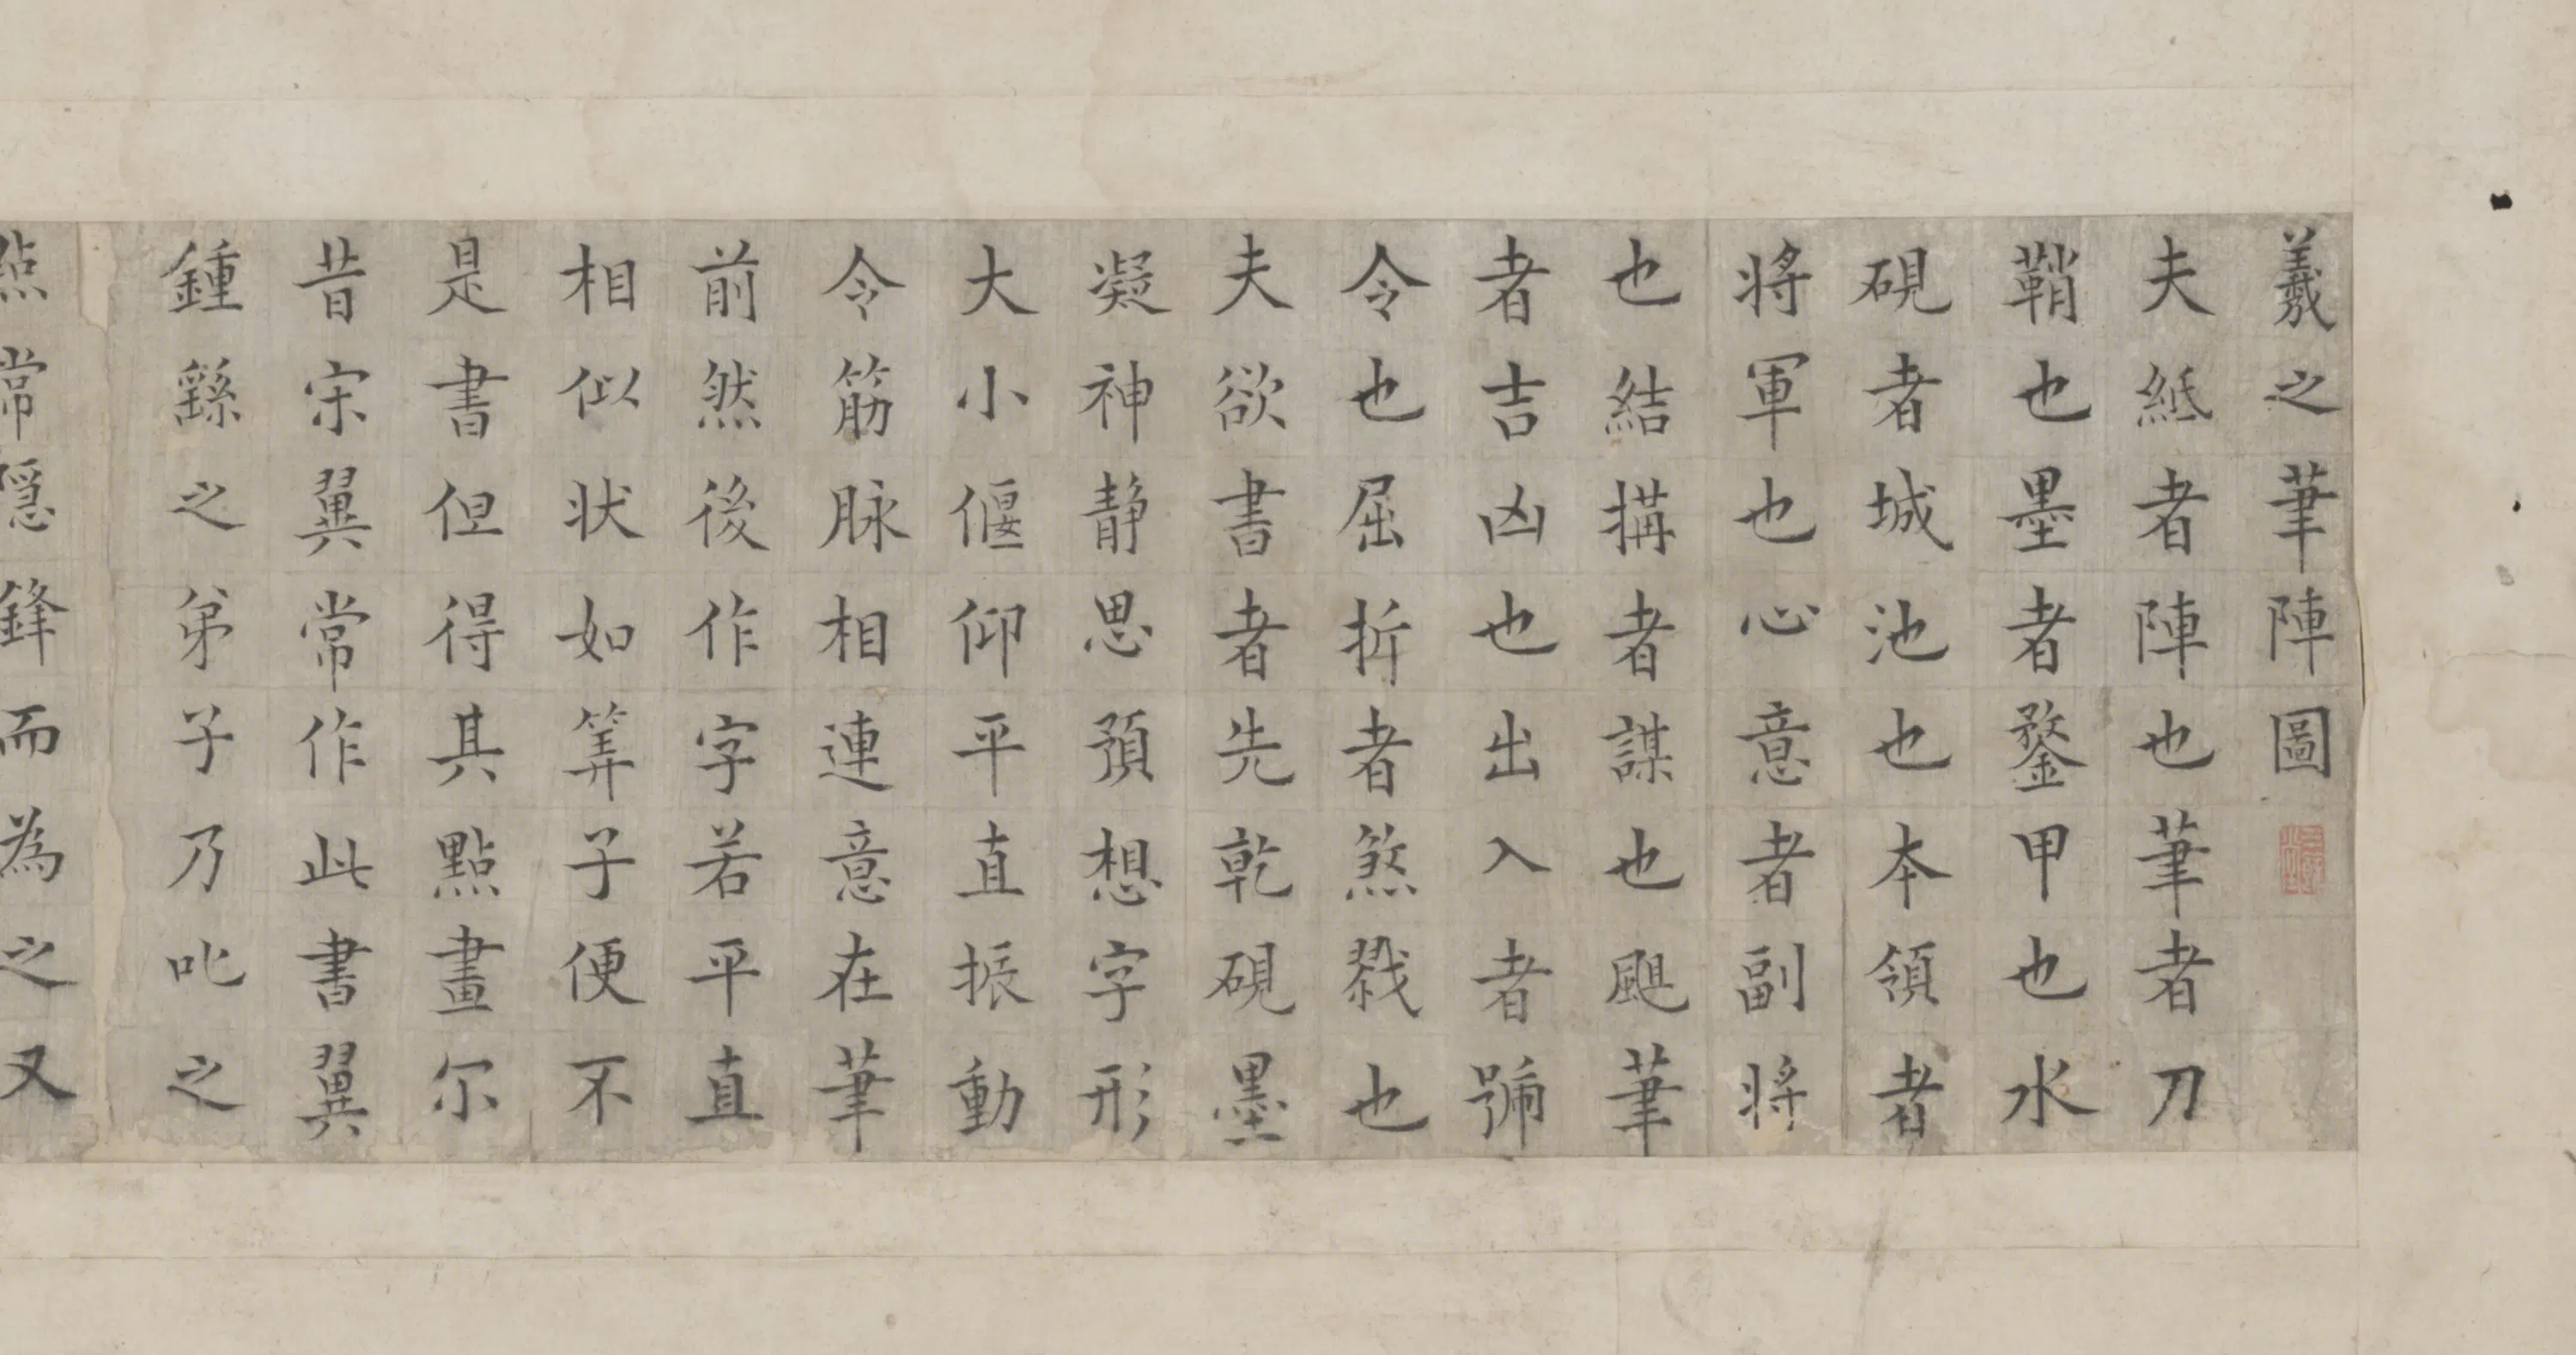 羲之筆陣圖
夫紙者陣也筆者刀
鞘也墨者鍪甲也水
硯者城池也本領者
將軍也心意者副將
也結搆者謀也颶筆
者吉凶也出入者號
令也屈折者煞戮也
夫欲書者先乾硯墨
凝神静思預想字形
大小偃仰平直振動
令筋脉相連意在筆
前然後作字若平直
相似状如筭子便不
是書但得其點畫尔
昔宋翼常作此書翼
鍾繇之弟子乃叱之
點常隱鋒而為之又